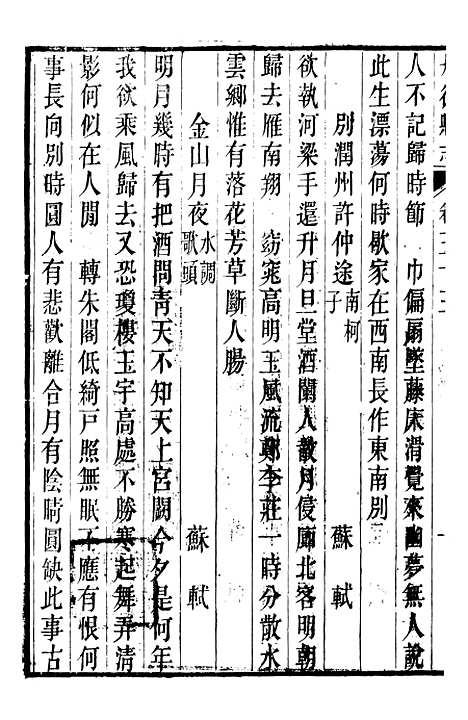 丹徒縣志 卷五十三
人不記歸時節 巾偏扇墜藤床滑覺來幽夢無人說
此生漂蕩何時歇家在西南長作東南別
別潤州許仲途 南柯子 蘇軾
欲執河梁手還升月旦堂酒闌人散月侵廊北客明朝
歸去雁南翔 窈窕高明玉風流鄭季莊一時分散水
雲鄉惟有落花芳草斷人腸
金山月夜 水調歌頭 蘇軾
明月幾時有把酒問青天不知天上宮闕今夕是何年
我欲乘風歸去又恐瓊樓玉宇高處不勝寒起舞弄清
影何似在人閒 轉朱閣低綺戶照無眠不應有恨何
事長向別時圓人有悲歡離合月有陰晴圓缺此事古